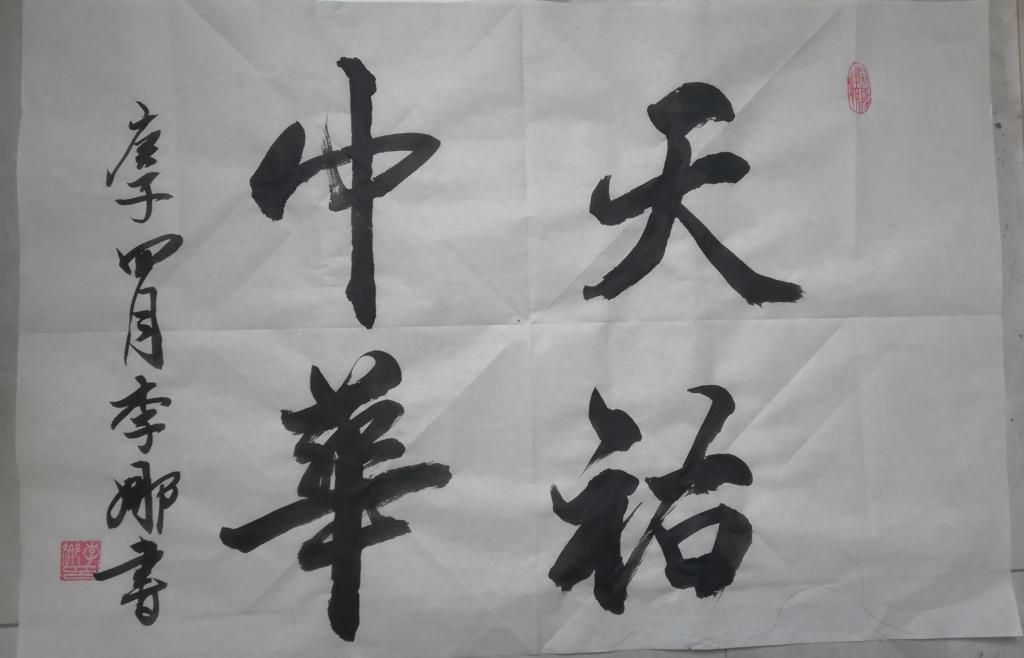 天祐
中華
庚子四月李娜書
李娜